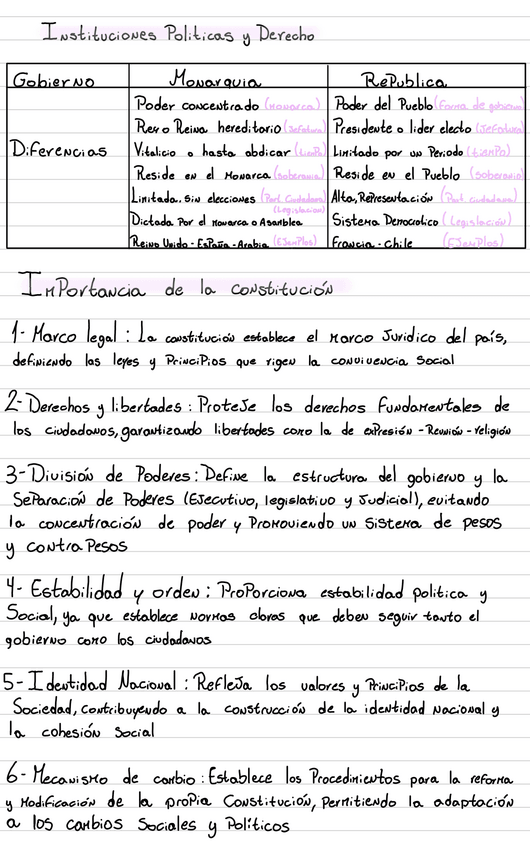 Instituciones Politicas y Derecho
Gobierno Monarquia RePublica
Poder concentrado (Monarca) Poder del Pueblo (Forma de gobierno)
Rey o Reina hereditorio (Jefatura) Presidente o lider electo (Jefatura)
Diferencias Vitalicio o hasta abdicar (tiemPo) Limitado por un Periodo (tiemPo)
Reside en el Monarca (soberania) Reside en el Pueblo (soberania)
Limitada. sin elecciones (Part. Ciudadana) Alta, RePresentación (Part. ciudadana)
(Legislacion)
Dictada Por el monarca o Asamblea Sistema Democratico (Legislación)
Reino Unido - España - Arabia (EJemPlos) Francia - chile (EJemPlos)
ImPortancia de la constitución
1- Marco legal : La constitución establece el marco Juridico del país,
definiendo las leyes y PrinciPios que rigen la convivencia Social
2- Derechos y libertades : ProteJe los derechos Fundamentales de
los ciudadanos, garantizando libertades como la de exPresión - Reunión - religión
3- División de Poderes : Define la estructura del gobierno y la
SePáración de Poderes (EJecutivo, legislativo y Judicial), evitando
la concentración de poder y Promoviendo un Sistema de pesos
y contraPesos
4- Estabilidad y orden : ProPorciona estabilidad politica y
Social, ya que establece normas claras que deben seguir tanto el
gobierno como los ciudadanos
5- Identidad Nacional : RefleJa los valores y PrinciPios de la
Sociedad, contribuyendo a la construcción de la identidad nacional y
la cohesión Social
6- Mecanismo de cambio : Establece los Procedimientos para la reforma
y Modificación de la proPia Constitución, permitiendo la adaptación
a los cambios Sociales y Políticos